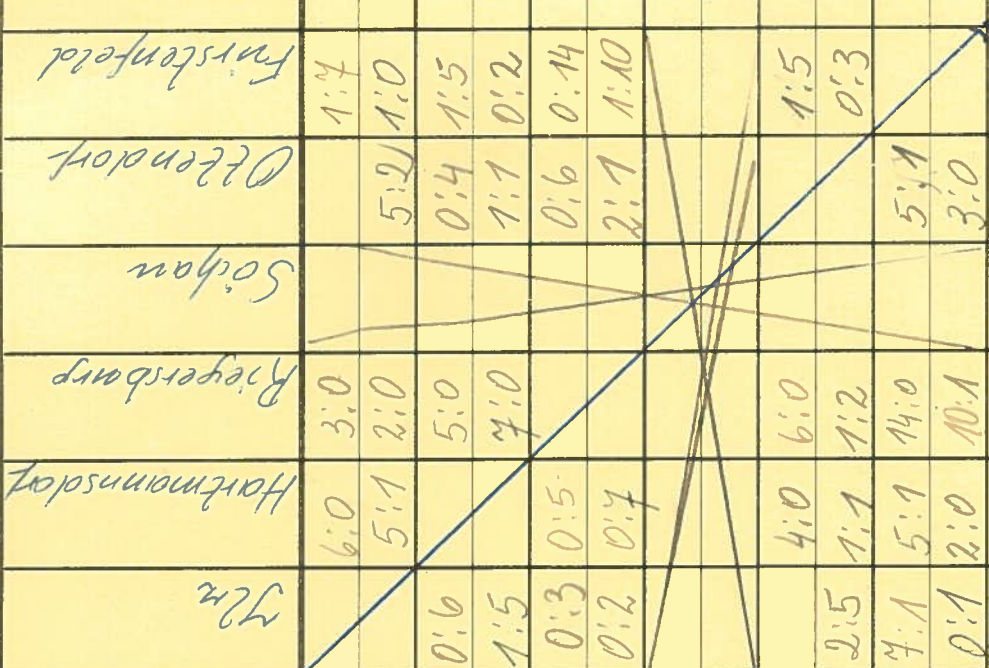 Fürstenfeld 1:7 1:0 1:5 0:2 0:14 1:10 1:5 0:3
Ottendorf 5:2 0:4 1:1 0:6 2:1 5:1 3:0
Söchau
Riegersburg 3:0 2:0 5:0 7:0 6:0 1:2 14:0 10:1
Hartmannsdorf 6:0 5:1 0:5 0:7 4:0 1:1 5:1 2:0
Ilz 0:6 1:5 0:3 0:2 2:5 7:1 0:1